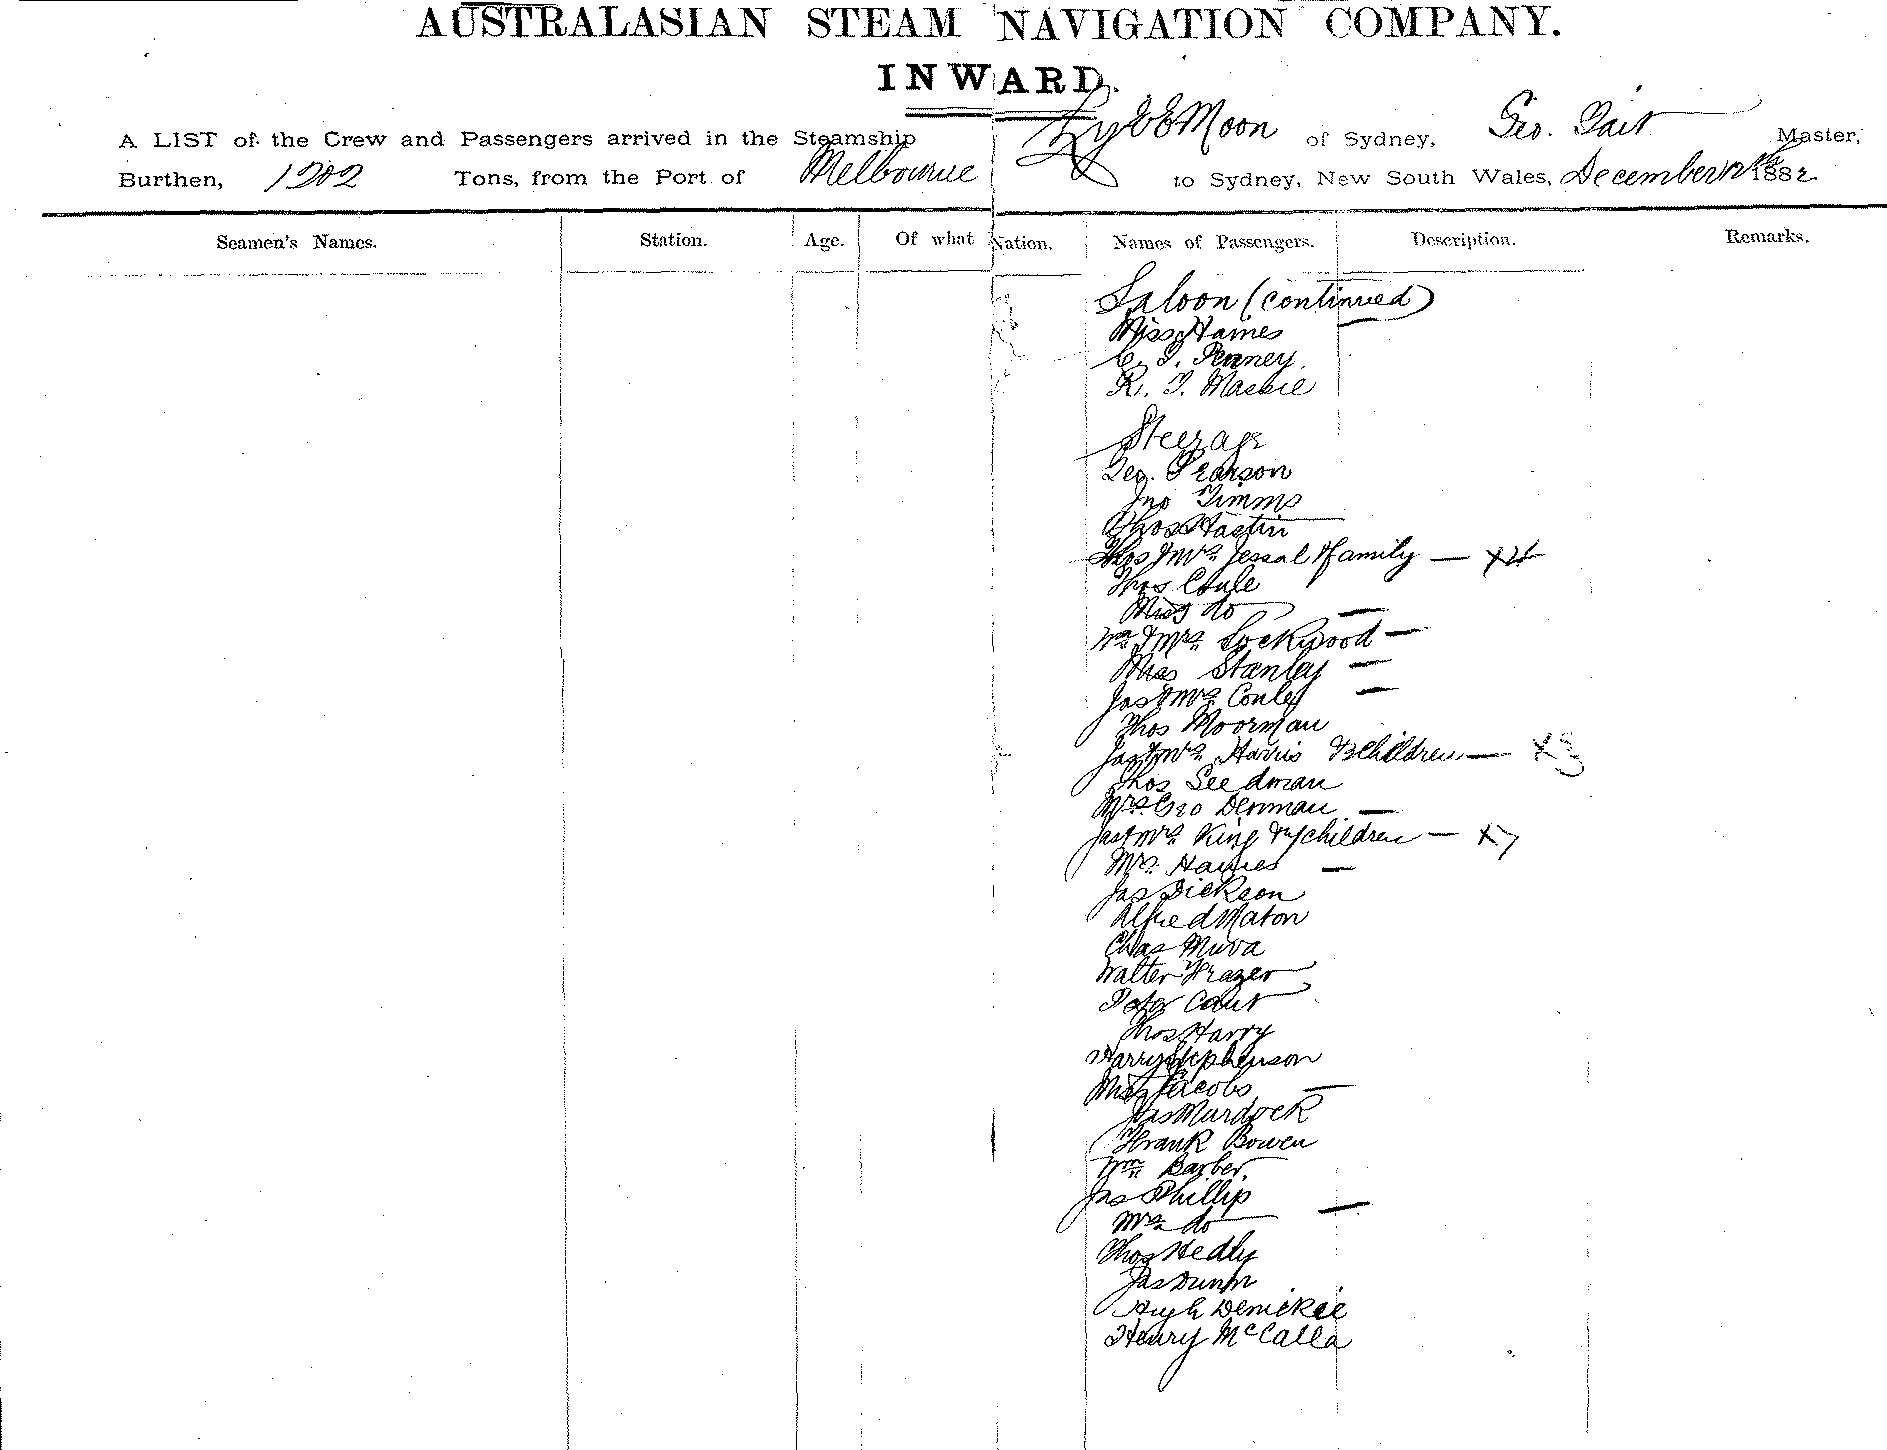 AUSTRALASIAN STEAM NAVIGATION COMPANY.
INWARD.
A LIST of the Crew and Passengers arrived in the Steamship Ly EE Moon of Sydney, Geo. Tait Master,
Burthen, 1202 Tons, from the Port of Melbourne to Sydney, New South Wales, December 12th 1882
Seamen's Names. Station. Age. Of what Nation. Names of Passengers. Description. Remarks.
Saloon (continued)
Miss Haines
C. T. Penney
R. T. Massie
Steerage
Geo. Pearson
Jno Timms
Thos Hastin
Thos & Mrs Jessal & family — X4
Thos Coule
Miss do —
Wm & Mrs Lockwood —
Miss Stanley —
Jas & Mrs Conley —
Thos Moorman
Jas & Mrs Harris & 3 children — X3
Thos Seedman
Mrs Geo Denman —
Jas & Mrs King & 7 children — X7
Mrs Haines —
Jas Dickson
Alfred Maton
Chas Mura
Walter Frazer
Peter Caut
Thos Harry
Harry Stephenson
Miss Jacobs —
Jas Murdock
Frank Bowen
Wm Barber
Jas Phillip
Mrs do —
Thos Hedly
Jas Dunn
Hugh Denickie
Henry McCalla